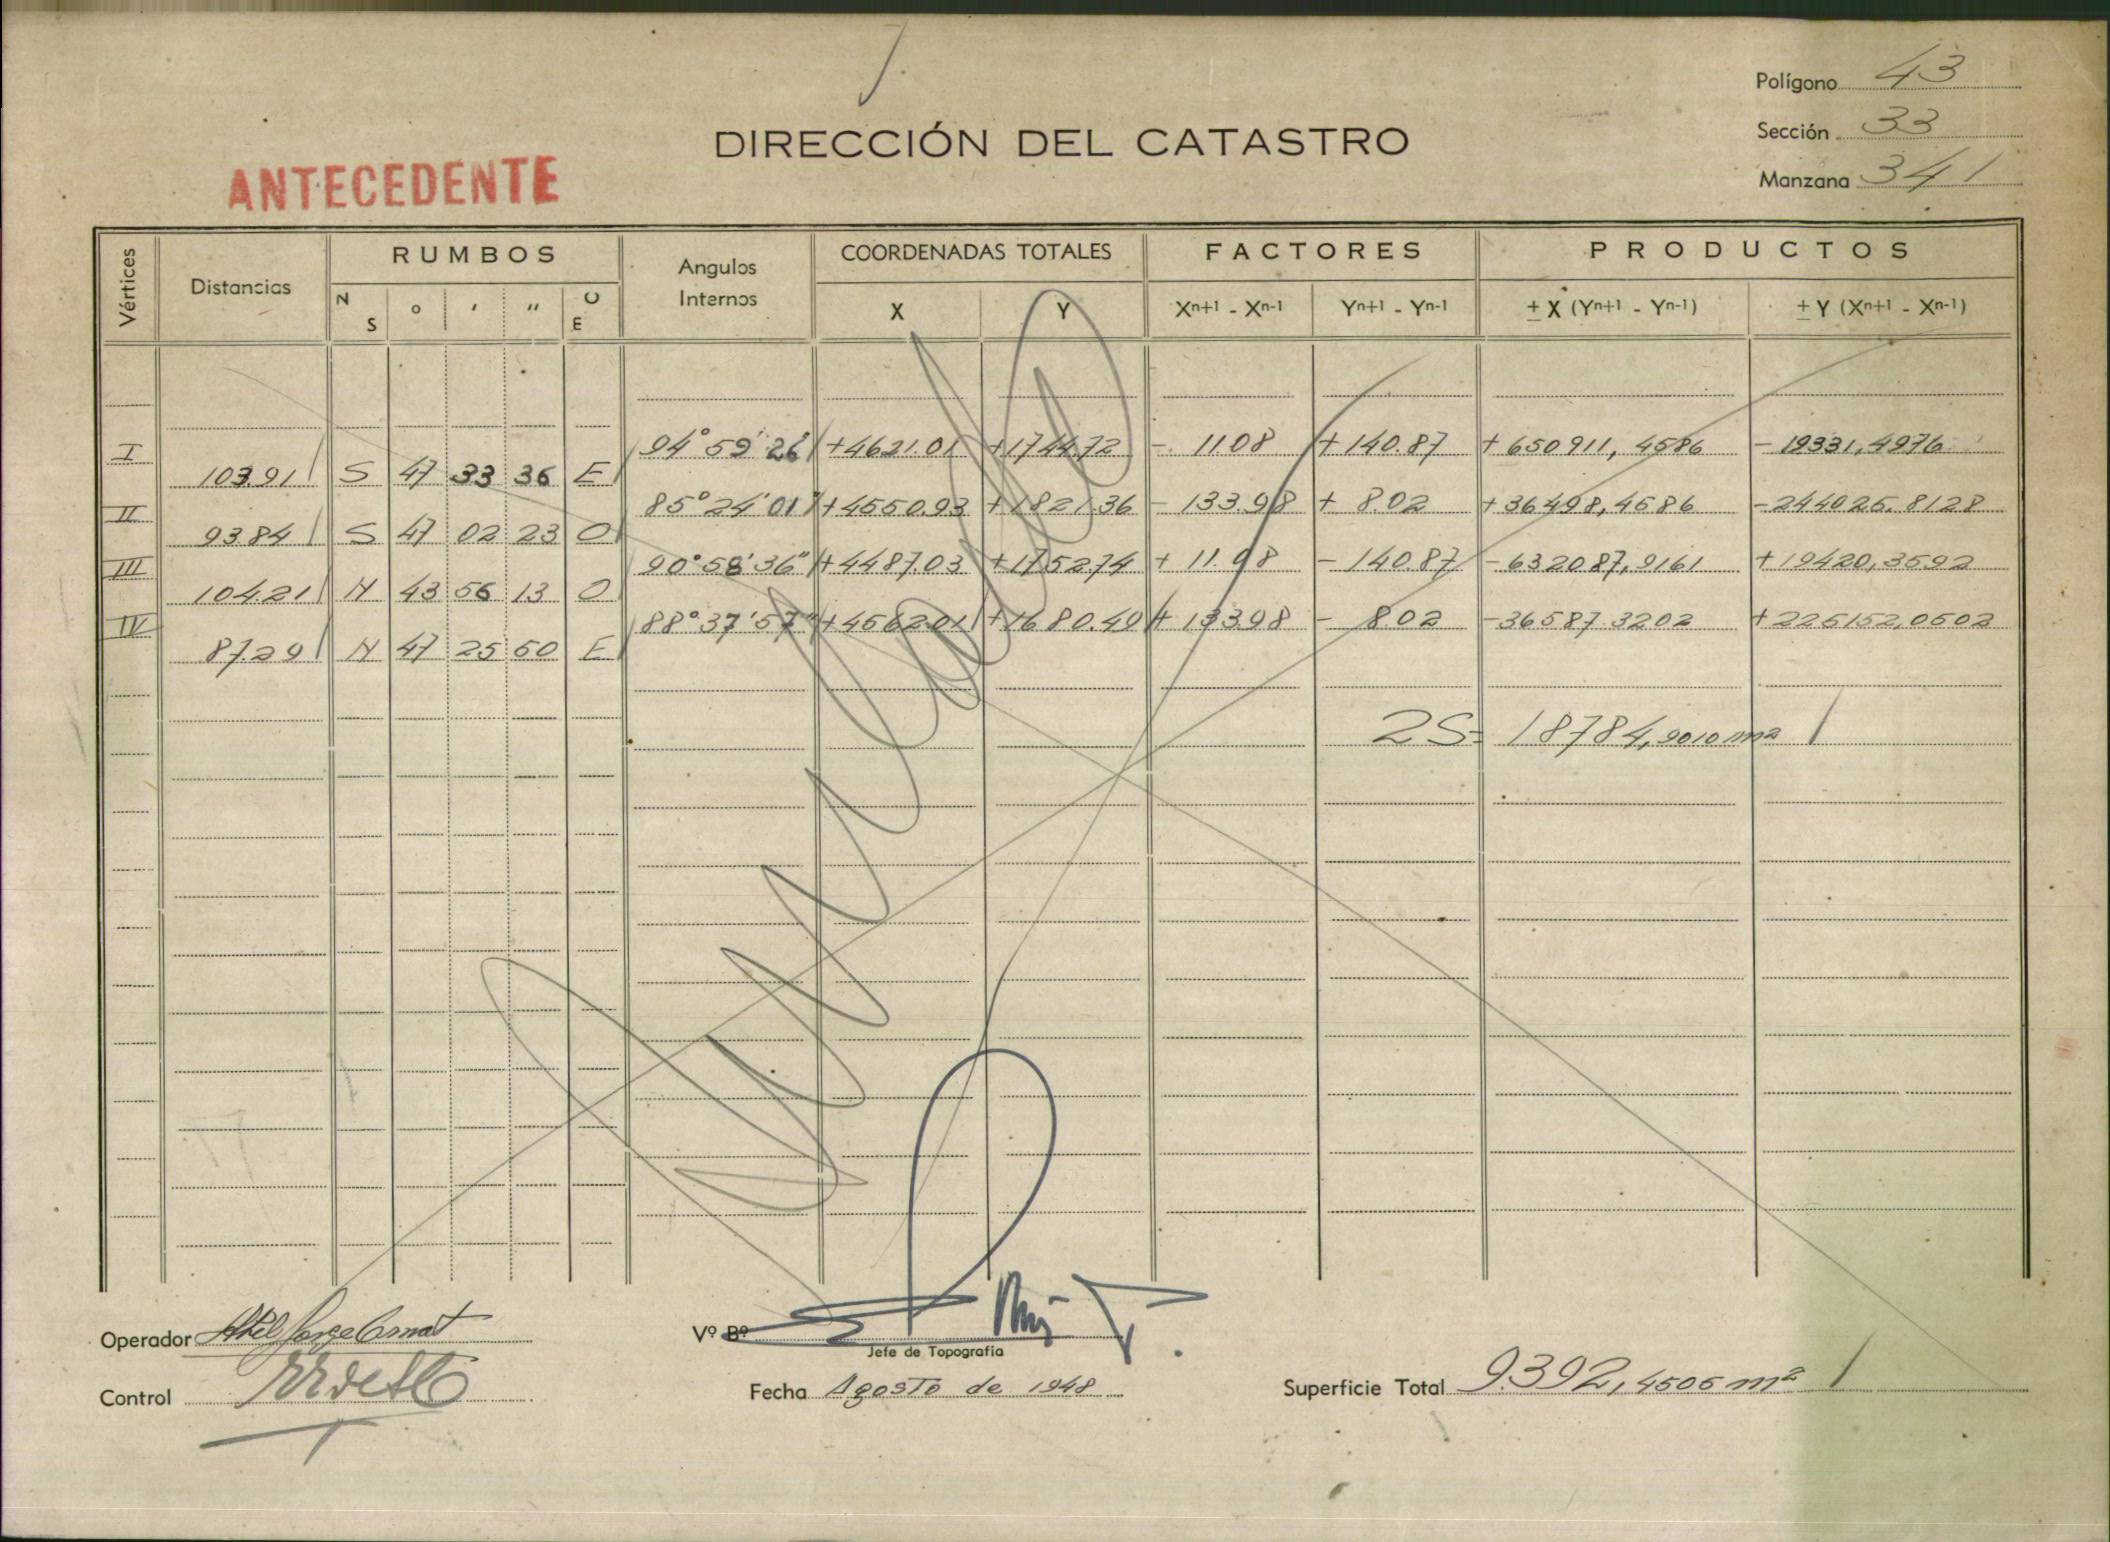 Polígono 43
DIRECCIÓN DEL CATASTRO
Sección 33
ANTECEDENTE
Manzana 341
Vértices Distancias RUMBOS Angulos Internos COORDENADAS TOTALES FACTORES PRODUCTOS
N S ° ' " O E X Y Xn+1 - Xn-1 Yn+1 - Yn-1 ± X (Yn+1 - Yn-1) ± Y (Xn+1 - Xn-1)
I 94° 59' 26" +4621.01 +1744.72 - 11.08 +140.87 +650911,4586 -19331,4976
103.91 S 47 33 36 E
II 85° 24' 01" +4550.93 +1821.36 - 133.98 + 8.02 +36498,4586 -244025,8128
93.84 S 47 02 23 O
III 90° 58' 36" +4487.03 +1752.74 + 11.08 - 140.87 -632087,9161 +19420,3592
104.21 N 43 56 13 O
IV 88° 37' 57" +4562.01 +1680.49 + 133.98 - 8.02 -36587.3202 +225152,0502
87.29 N 47 25 50 E
2S= 18784,9010 m2
Operador
Vº Bº
Jefe de Topografía
Control
Fecha Agosto de 1948
Superficie Total 9.392,4505 m²